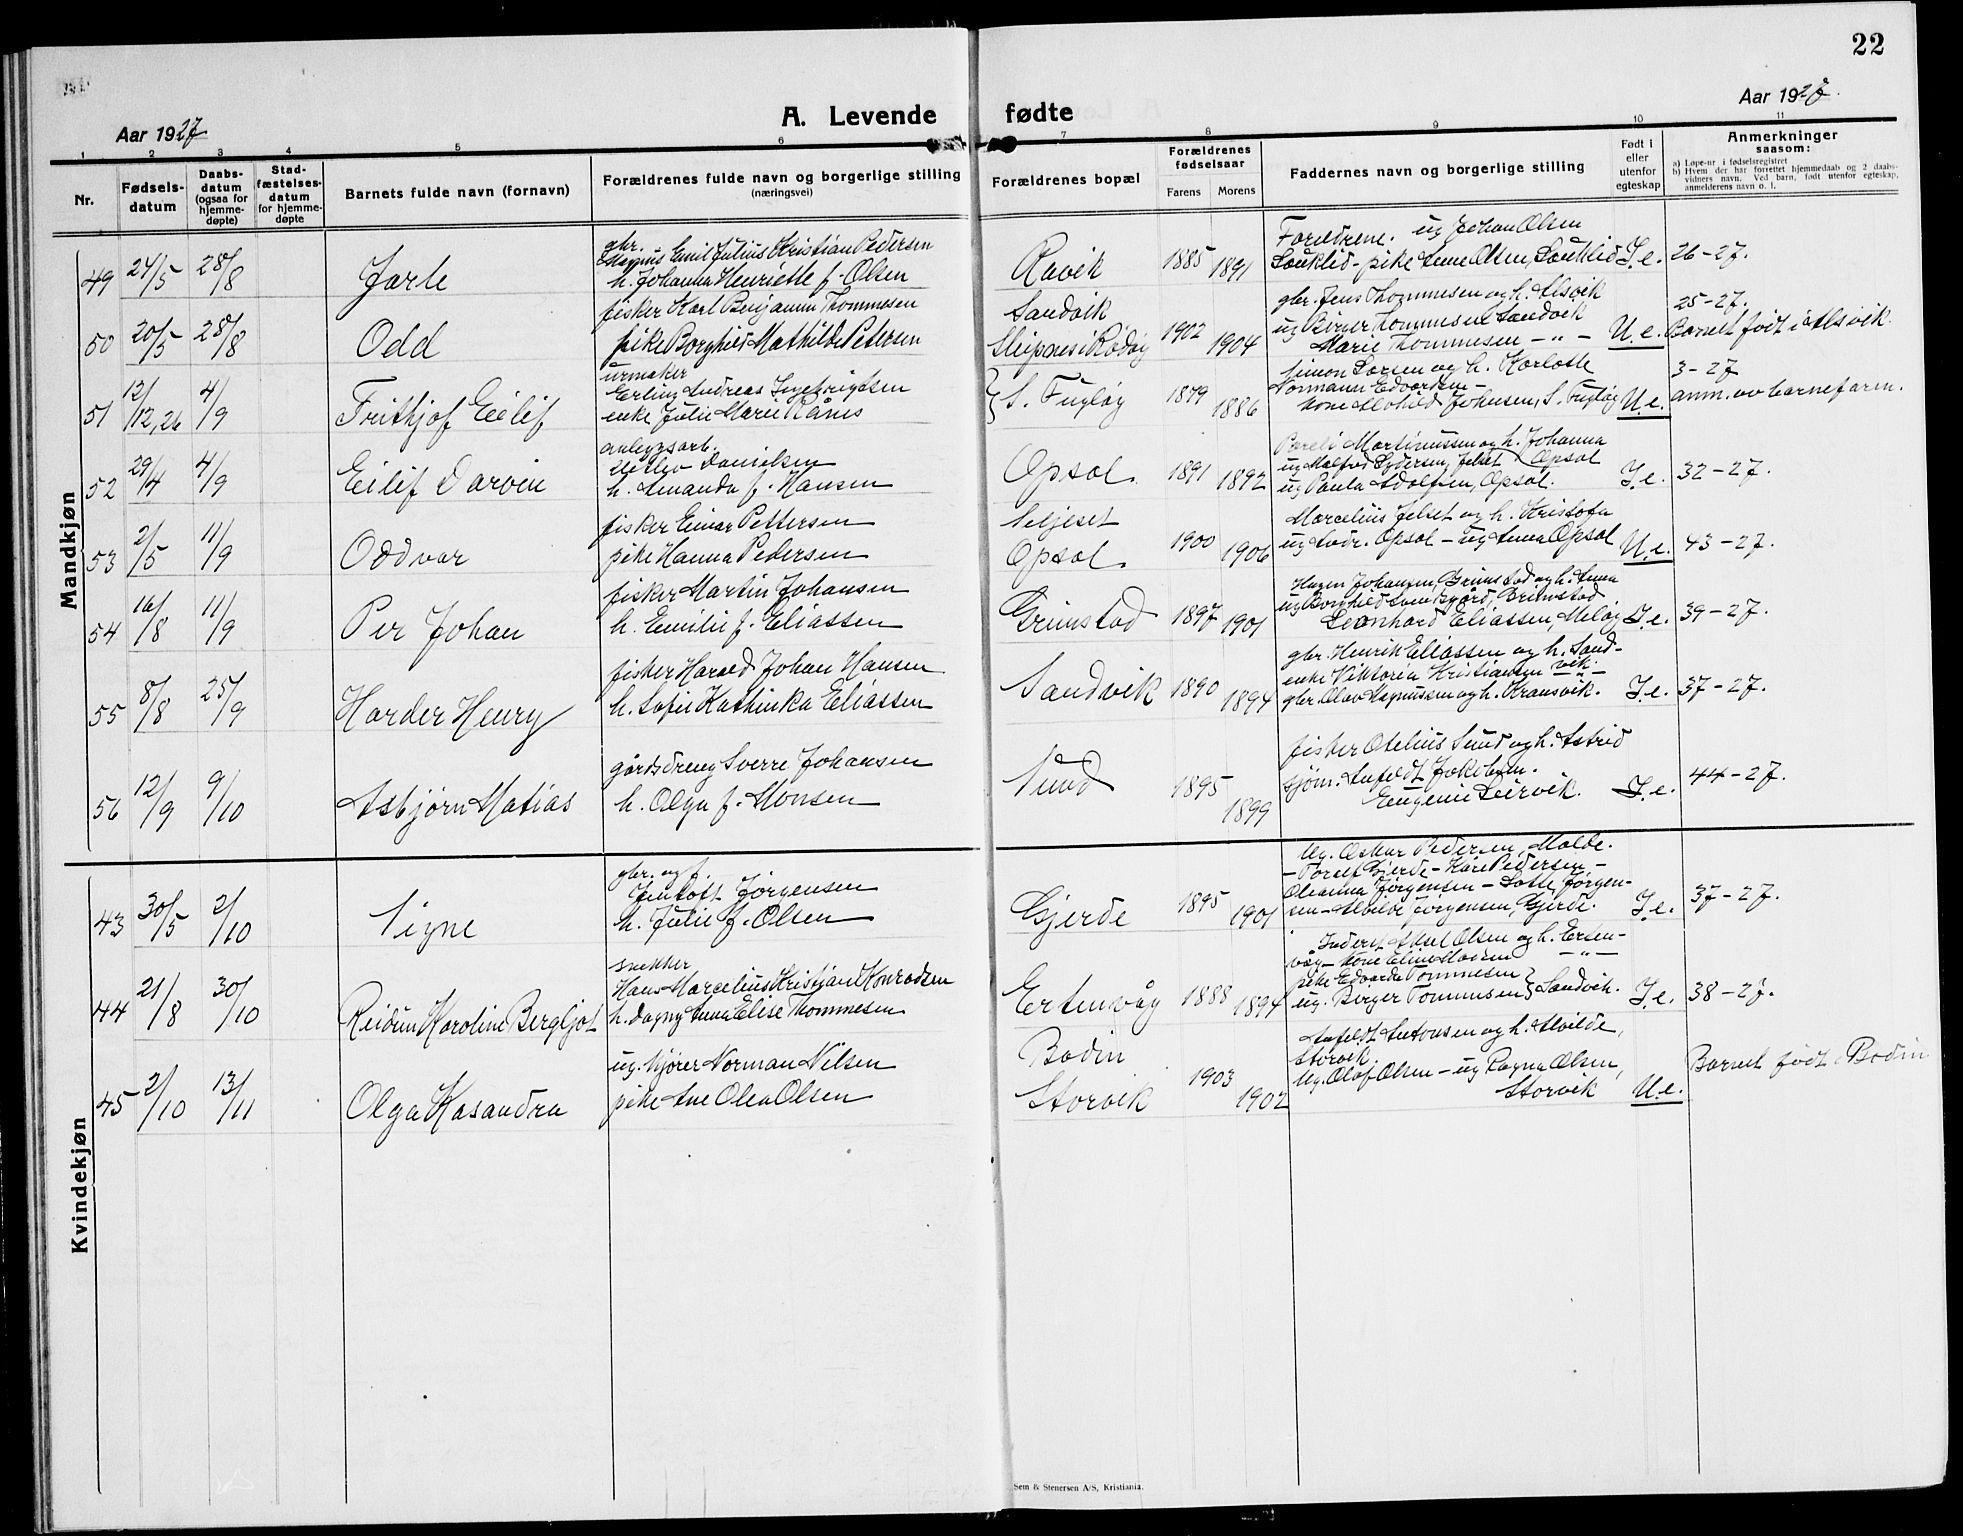 22
Aar 1927
A. Levende fødte
Aar 1927.
1 2 3 4 5 6 7 8 9 10 11
Nr.
Fødsels-datum
Daabs-datum (ogsaa for hjemme-døpte)
Stad-fæstelses-datum for hjemme-døpte
Barnets fulde navn (fornavn)
Forældrenes fulde navn og borgerlige stilling (næringsvei)
Forældrenes bopæl
Forældrenes fødselsaar
Farens Morens
Faddernes navn og borgerlige stilling
Født i eller utenfor egteskap
Anmerkninger saasom:
a) Løpe-nr i fødselsregistret
b) Hvem der har forrettet hjemmedaab og 2 daabs-vidners navn. Ved barn, født utenfor egteskap, anmelderens navn o. l.
Mandkjøn
gbr.
Magnus Emil Julius Kristian Pedersen
49 24/5 28/8 Jarle h. Johanna Henriette f. Olsen
Ravik 1885 1891
Foreldrene. ug Johan Olsen
pike Anne Olsen, I.e. 26-27.
fisker Karl Benjamin Thommesen
50 20/5 28/8 Odd pike Borghild Mathilde Petersen
Sandvik
Sleipnes i Rødøy 1902 1904
gbr. Jens Thommesen og h. Alsvik
ug Birger Thommesen Sandvik
Marie Thommesen - " - U.e.
25-27.
Barnet født i Alsvik.
urmaker
Erling Andreas Ingebrigtsen
51 12/12,26 4/9 Frithjof Eilif enke Julie Marie Rånes
S. Fugløy 1879 1886
Simon Larsen og h. Karlotte
Normann Edvardsen -
kone Johnsen, S. Fugløy U.e.
3-27
anm. av barnefaren.
anleggsarb.
Danielsen
52 29/4 4/9 Eilif Darvin h. Amanda f. Hansen
Opsal. 1891 1892
Martinussen og h. Johanna
ug Pedersen, Jelset Opsal
ug Paula Adolfsen, Opsal. I.e. 32-27.
fisker Einar Pettersen
53 2/5 11/9 Oddvar pike Hanna Pedersen
Seljeset
Opsal. 1900 1906
Marcelius Jelset og h. Kristofa
ug Andr. Opsal - ug Anna Opsal U.e. 43-27.
fisker Martin Johansen
54 16/8 11/9 Per Johan h. Emilie f. Eliassen
Grimstad 1897 1901
Hagen Johansen, Grimstad og h. Anna
ug Borghild
Leonhard Eliassen, Meløy I.e. 39-27.
fisker Harald Johan Hansen
55 8/8 25/9 Harder Henry h. Sofie Kathinka Eliassen
Sandvik 1890 1894
gbr. Henrik Eliassen og h. Sand-
enke Viktoria Kristiansen vik. - " -
gbr. Olav Magnussen og h. Kransvik. I.e. 37-27.
gårdsdreng Sverre Johansen
56 12/9 9/10 Asbjørn Matias h. Olga f. Monsen
Sund 1895 1899
fisker Otelius Sund og h. Astrid
sjøm. Anfeldt Jakobsen.
Eugenie Leirvik. I.e. 44-27.
Kvindekjøn
gbr. og f.
Jentoft Jørgensen
43 30/5 2/10 Signe h. Julie f. Olsen
Gjerde 1895 1901
Ug. Oskar Pedersen, Molde.
- Toralf Gjerde - Kåre Pedersen -
Oleanna Jørgensen - Lotte Jørgen-
sen - Alvilde Jørgensen, Gjerde. I.e. 37-27.
snekker
Hans Marcelius Kristian Konradsen
44 21/8 30/10 Reidun Karoline Bergljot h. Dagny Anna Elise Thommesen
Ertenvåg 1888 1894
Aksel Olsen og h. Erten-
våg - kone Eline - " -
pike Edvarda Tommesen
ug. Birger Tommesen } Sandvik. I.e. 38-27.
ug. kjører Norman Nilsen
45 2/10 13/11 Olga Kasandra pike Ane Olea Olsen
Bodin
Storvik 1903 1902
Anfeldt Antonsen og h. Alvilde,
Storvik.
Ug. Olaf Olsen - ug Ragna Olsen,
Storvik U.e.
Barnet født i Bodin
Sem & Stenersen A/S, Kristiania.